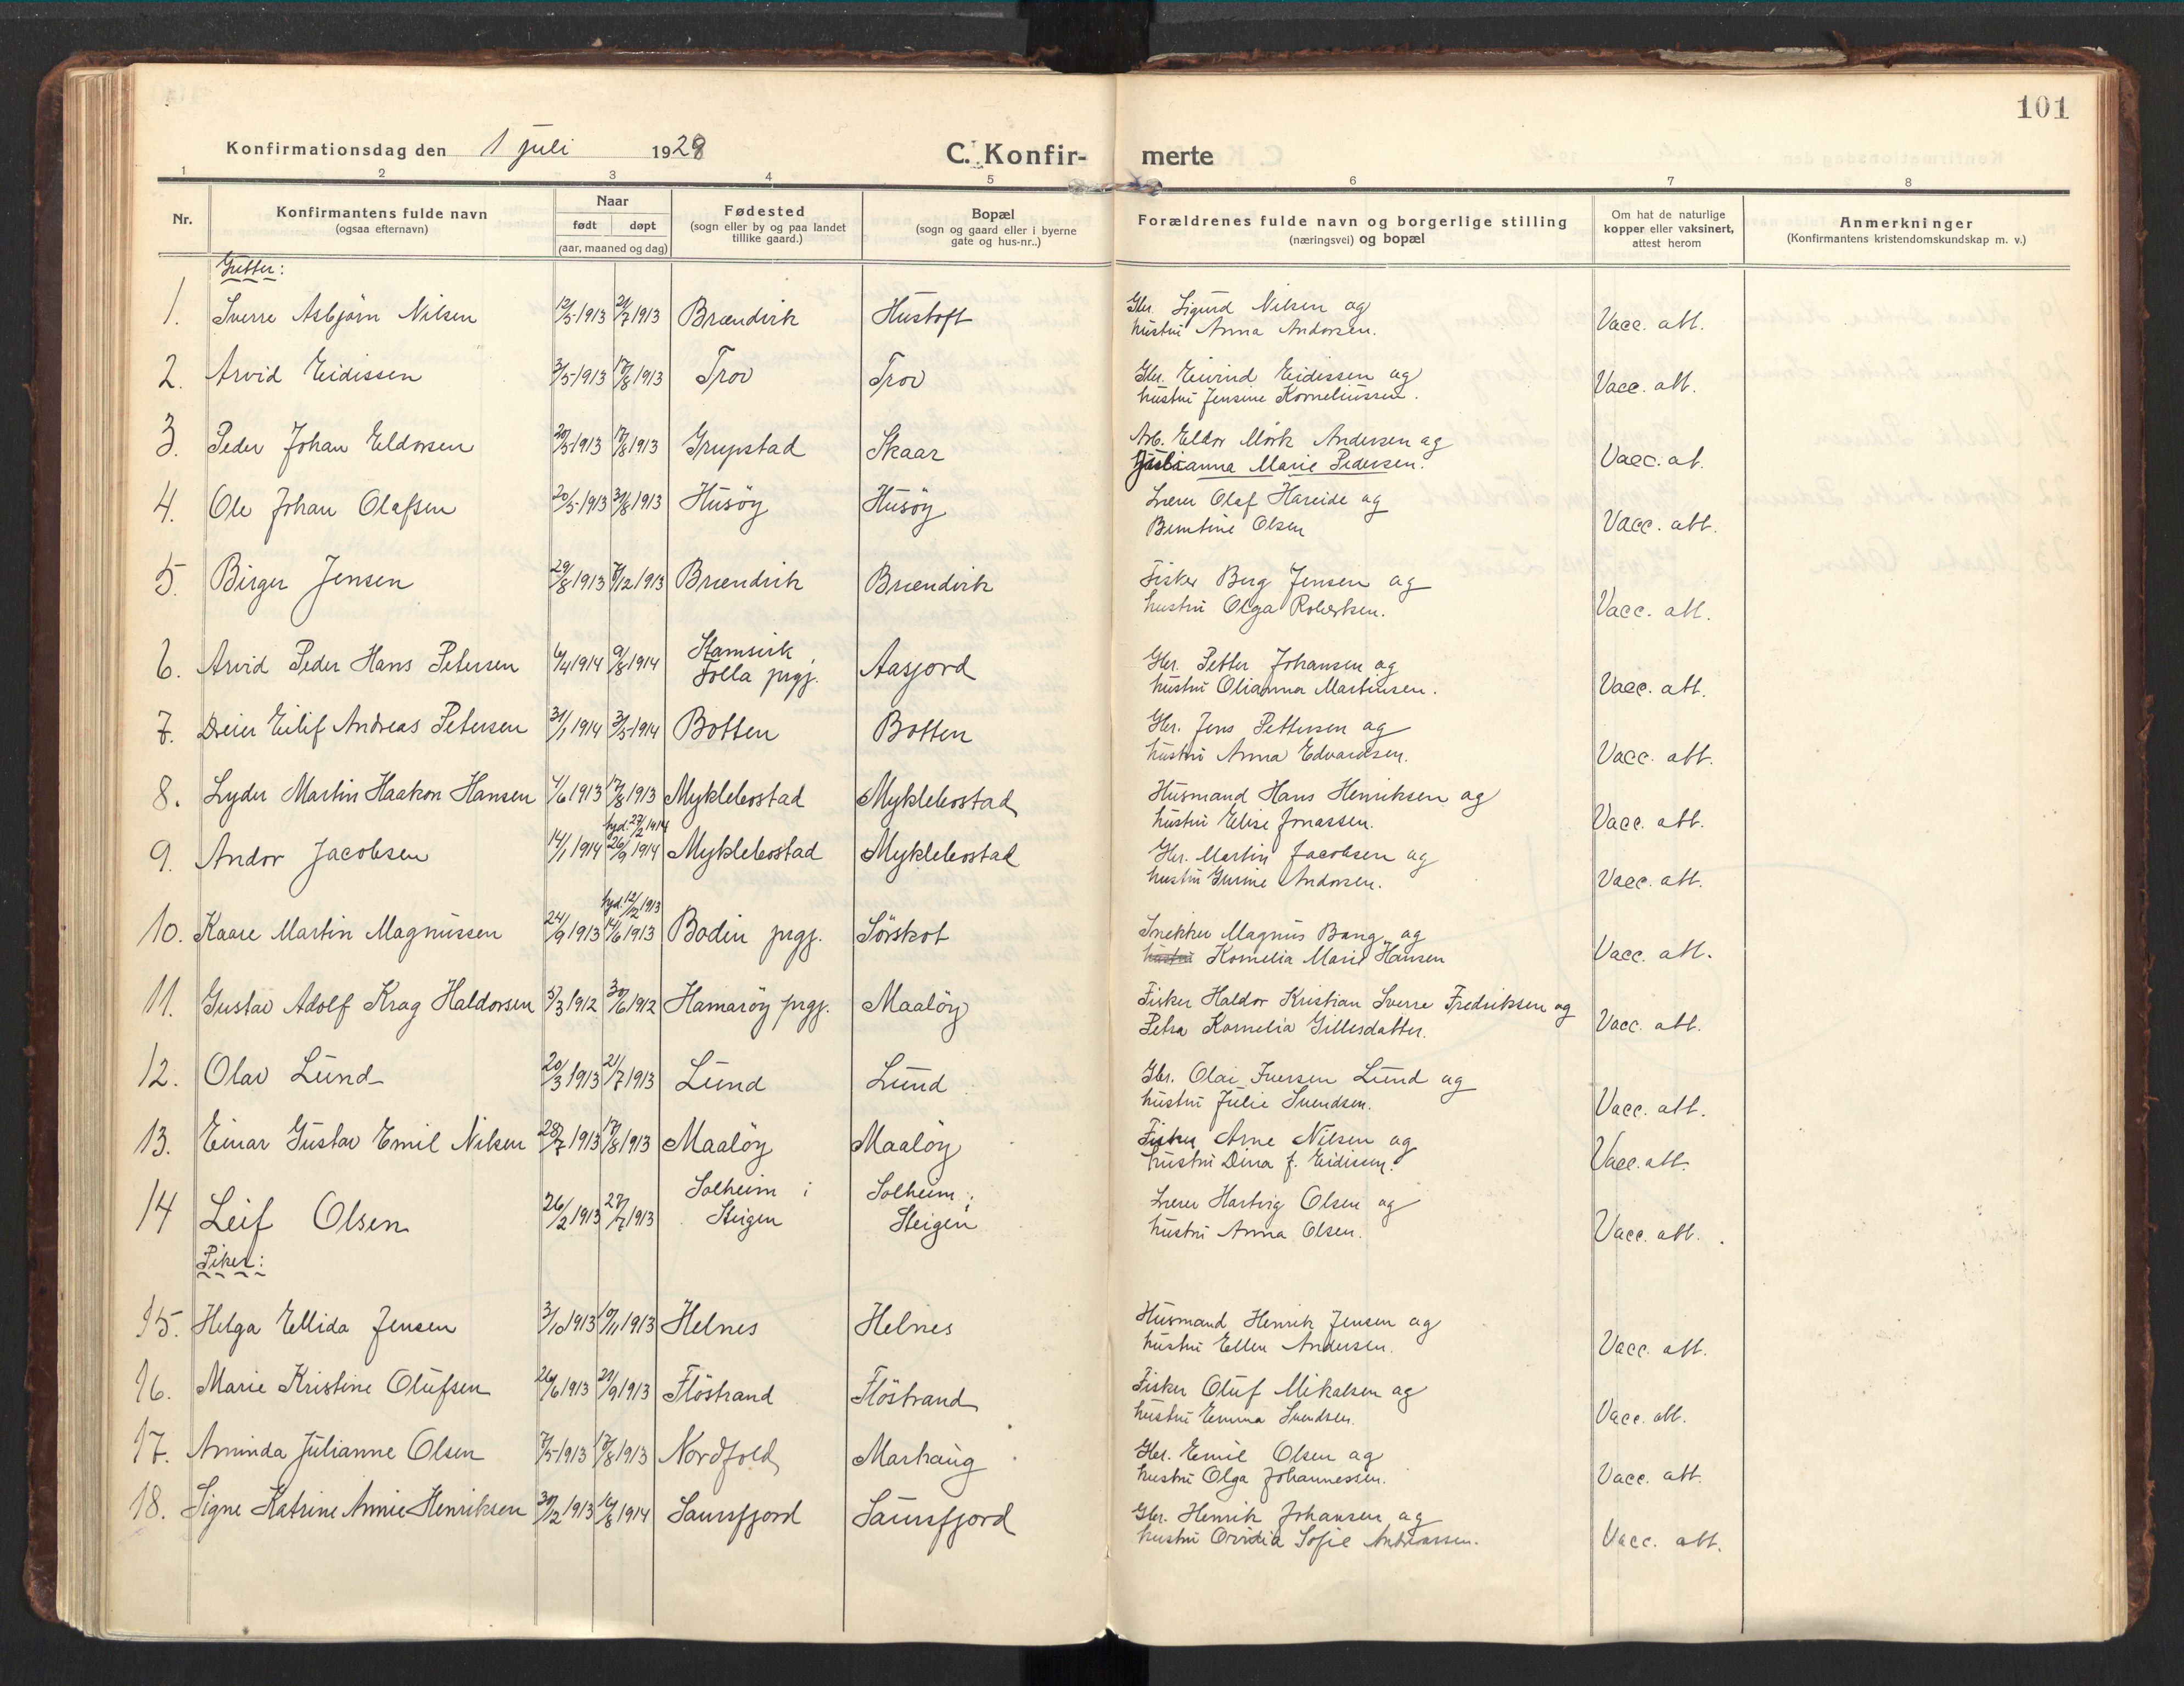 101
Konfirmationsdag den 1 juli 1928
C. Konfir- merte
1 2 3 4 5 6 7 8
Nr.
Konfirmantens fulde navn
(ogsaa efternavn)
Naar
født døpt
(aar, maaned og dag)
Fødested
(sogn eller by og paa landet
tillike gaard.)
Bopæl
(sogn og gaard eller i byerne
gate og hus-nr..)
Forældrenes fulde navn og borgerlige stilling
(næringsvei) og bopæl
Om hat de naturlige
kopper eller vaksinert,
attest herom
Anmerkninger
(Konfirmantens kristendomskundskap m. v.)
Gutter:
1. Sverre Asbjørn Nilsen 12/5 1913 21/7 1913 Brændvik Hustoft Gbr. Sigurd Nilsen og
hustru Anna Andorsen. Vacc. att.
2. Arvid Eidissen 3/5 1913 17/8 1913 Trov Trov Gbr. Eivind Eidissen og
hustru Jensine Korneliussen. Vacc. att.
3. Peder Johan Eldorsen 1913 17/8 1913 Grypstad Skaar Arb. Eldor Mörk Andersen og
Marie Pedersen. Vacc. at.
4. Ole Johan Olafsen 20/5 1913 31/8 1913 Husöy Husöy Lærer Olaf Hareide og
Berntine Olsen Vacc. att.
5. Birger Jensen 29/8 1913 7/12 1913 Brændvik Brændvik Fisker Berg Jensen og
hustru Olga Robertsen. Vacc. att.
6. Arvid Peder Hans Petersen 6/4 1914 9/8 1914 Stamsvik,
Folla prgj. Aasjord Gbr. Petter Johansen og
hustru Olianna Martinsen. Vacc. att.
7. Dreier Eilif Andreas Petersen 31/1 1914 3/5 1914 Botten Botten Gbr. Jens Pettersen og
hustru Anna Edvardsen. Vacc. att.
8. Lyder Martin Haakon Hansen 4/6 1913 17/8 1913 Myklebostad Myklebostad Husmand Hans Henriksen og
hustru Elise Jonassen. Vacc. att.
hjd. 27/2 1914
9. Andor Jacobsen 14/1 1914 26/9 1914 Myklebostad Myklebostad Gbr. Martin Jacobsen og
hustru Gurine Andorsen. Vacc. att.
hjd. 12/12 1913
10. Kaare Martin Magnussen 24/9 1913 14/6 1913 Bodin prgj. Sörskot Snekker Magnus Bang og
hustru Kornelia Marie Hansen Vacc. att.
11. Gustav Adolf Krag Haldorsen 5/3 1912 30/6 1912 Hamaröy prgj. Maalöy Fisker Haldor Kristian Sverre Fredriksen og
Petra Kornelia Gillesdatter. Vacc. att.
12. Olav Lund 20/3 1913 21/7 1913 Lund Lund Gbr. Olai Iversen Lund og
hustru Julie Svendsen. Vacc. att.
13. Einar Gustav Emil Nilsen 28/7 1913 17/8 1913 Maalöy Maalöy Fisker Arne Nilsen og
hustru Dina f. Eidissen. Vacc. att.
14 Leif Olsen 26/2 1913 27/7 1913 Solheim i
Steigen Solheim i
Steigen Lærer Hartvig Olsen og
hustru Anna Olsen. Vacc. att.
Piker:
15. Helga Ellida Jensen 3/10 1913 19/11 1913 Helnes Helnes Husmand Henrik Jensen og
hustru Ellen Andersen. Vacc. att.
16. Marie Kristine Olufsen 26/6 1913 21/9 1913 Flöstrand Flöstrand Fisker Oluf Mikalsen og
hustru Emma Svendsen. Vacc. att.
17. Aminda Julianne Olsen 7/5 1913 17/8 1913 Nordfold Marhaug Gbr. Emil Olsen og
hustru Olga Johannessen. Vacc. att.
18. Signe Katrine Annie Henriksen 30/12 1913 16/8 1914 Saursfjord Saursfjord Gbr. Henrik Johansen og
hustru Ovidia Sofie Andreassen. Vacc. att.